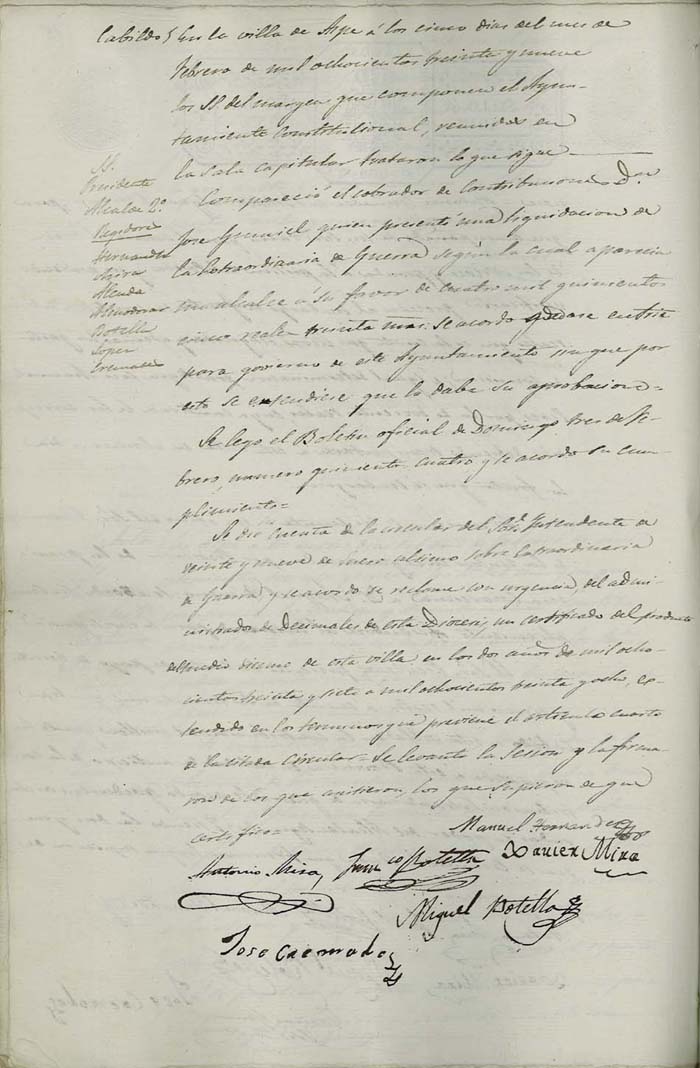 Cabildo 5 En la villa de Aspe á los cinco dias del mes de
Febrero de mil ochocientos treinta y nueve
los SS. del margen que componen el Ayun-
tamiento Constitucional, reunidos en
la Sala capitular trataron lo que sigue
SS.
Presidente
Alcalde 2º
Regidores
Hernandez
Mira
Almodovar
Botella
Lopez
Cremades
Compareció el cobrador de Contribuciones Dn
Jose quien presentó una liquidacion de
la Extraordiaria de Guerra según la cual aparecia
un alcalce á su favor de cuatro mil quinientos
cinco reales treinta mrs: se acordo quedase en este
para govierno de este Ayuntamiento sin que por
esto se entendiese que la daba su aprobacion=
Se leyo el Boletin oficial de Domingo tres de Fe-
brero, numero quinientos cuatro y se acordo su cum-
plimiento=
Se dió cuenta de la circular del Sor Intendente de
veinte y nueve de Enero ultimo sobre Extraordinaria
de Guerra y se acordo se reclame con urgencia, del admi-
nistrador de Decimales de esta Diocesi, un certificado del producto
del medio diezmo de esta villa en los dos años de mil ocho-
cientos treinta y siete a mil ochocientos treinta y ocho, ex-
tendido en los terminos que previene el articulo cuarto
de la citada Circular= Se levanto la Sesion y la firma-
ron de los que asistieron, los que supieron de que
certifico=
Manuel Fernandez
Antonio Mira, Franco Botella Xavier Mira
Miguel Botella
Jose Cremades